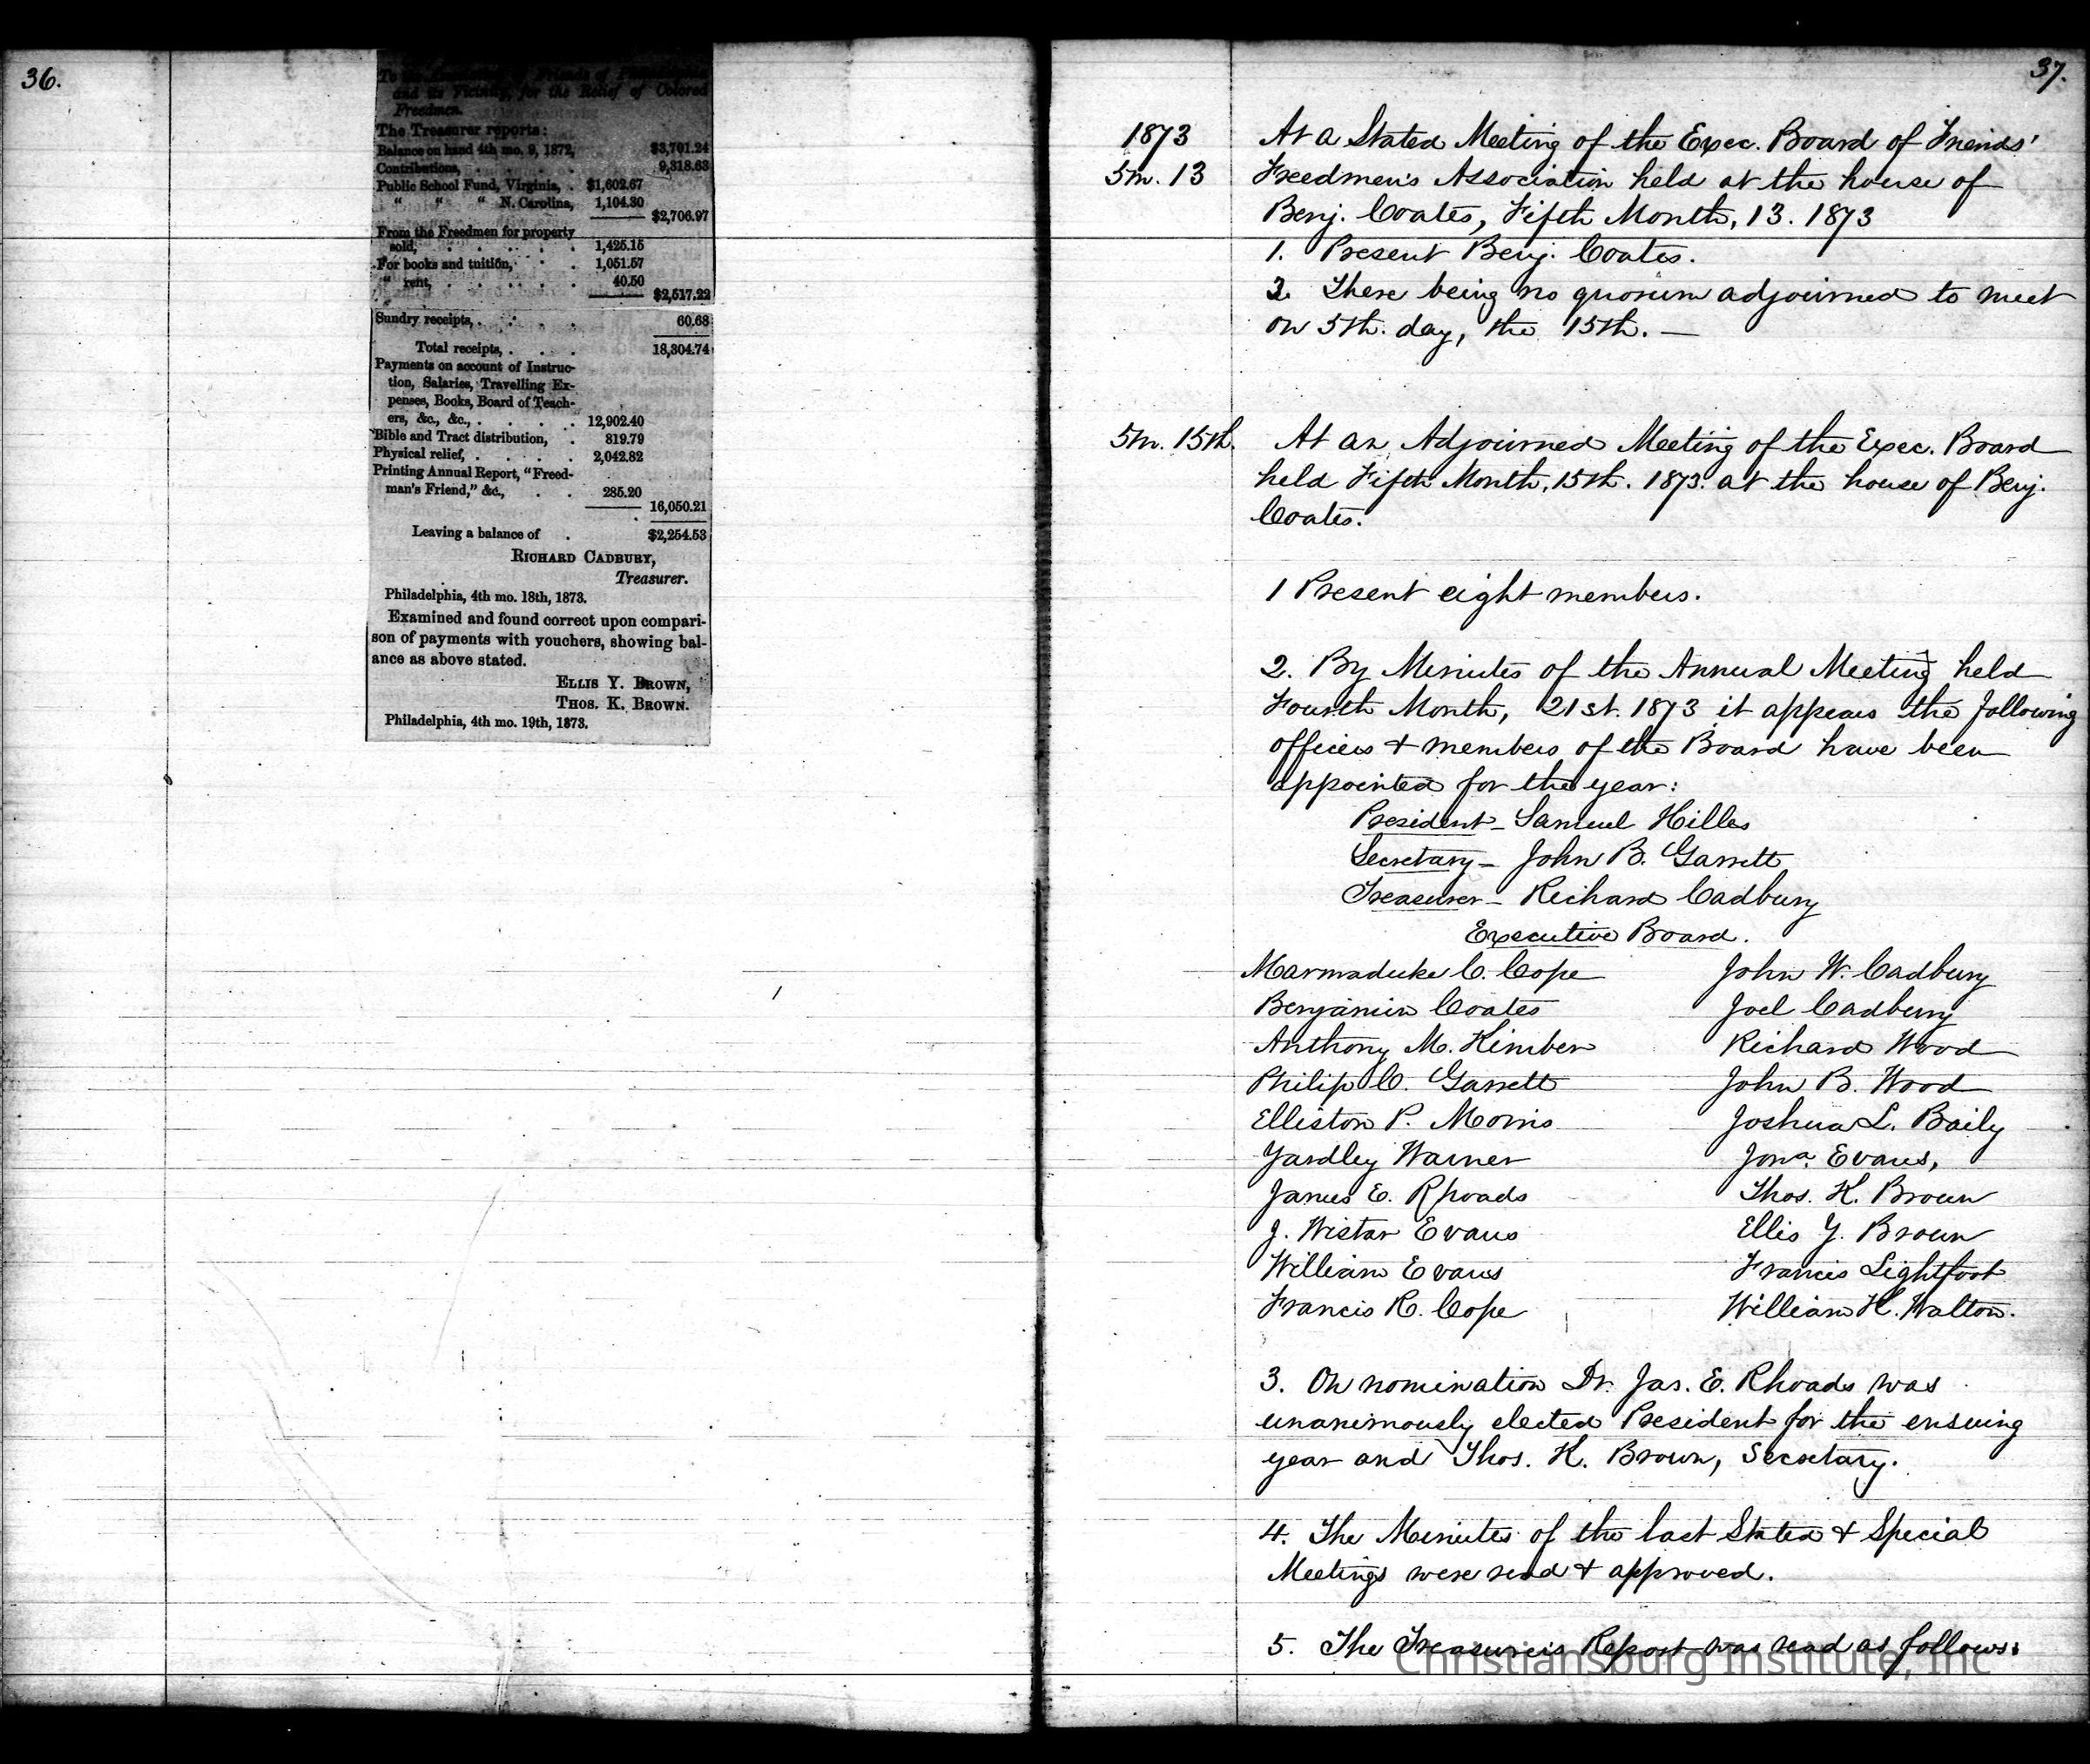 36.
To the Association of Friends of Philadelphia
and its Vicinity, for the Relief of Colored
Freedmen.
The Treasurer reports:
Balance on hand 4th mo. 9, 1872, $3,701.24
Contributions, . . . . 9,318.63
Public School Fund, Virginia, . $1,602.67
“ “ “ N. Carolina, 1,104.30
$2,706.97
From the Freedmen for property
sold, . . . . . 1,425.15
For books and tuition, . . 1,051.57
“ rent, . . . . . 40.50
$2,517.22
Sundry receipts, . . . 60.68
Total receipts, . . . 18,304.74
Payments on account of Instruc-
tion, Salaries, Travelling Ex-
penses, Books, Board of Teach-
ers, &c., &c., . . . . 12,902.40
Bible and Tract distribution, . 819.79
Physical relief, . . . . 2,042.82
Printing Annual Report, “Freed-
man's Friend,” &c., . . 285.20
16,050.21
Leaving a balance of . $2,254.53
RICHARD CADBURY,
Treasurer.
Philadelphia, 4th mo. 18th, 1873.
Examined and found correct upon compari-
son of payments with vouchers, showing bal-
ance as above stated.
ELLIS Y. BROWN,
THOS. K. BROWN.
Philadelphia, 4th mo. 19th, 1873.
37.
1873 At a Stated Meeting of the Exec. Board of Friends'
5m. 13 Freedmen's Association held at the house of
Benj. Coates, Fifth Month, 13. 1873
1. Present Benj. Coates.
2. There being no quorum adjourned to meet
on 5th. day, the 15th. —
5m. 15th. At an Adjourned Meeting of the Exec. Board
held Fifth Month, 15th. 1873. at the house of Benj.
Coates.
1 Present eight members.
2. By Minutes of the Annual Meeting held
Fourth Month, 21st. 1873 it appears the following
officers & members of the Board have been
appointed for the year:
President - Samuel Hilles
Secretary - John B. Garrett
Treasurer - Richard Cadbury
Executive Board.
Marmaduke C. Cope John W. Cadbury
Benjamin Coates Joel Cadbury
Anthony M. Kimber Richard Wood
Philip C. Garrett John B. Wood
Elliston P. Morris Joshua L. Baily
Yardley Warner Jona. Evans,
James E. Rhoads Thos. K. Brown
J. Wistar Evans Ellis Y. Brown
William Evans Francis Lightfoot
Francis R. Cope William K. Walton.
3. On nomination Dr. Jas. E. Rhoads was
unanimously elected President for the ensuing
year and Thos. K. Brown, Secretary.
4. The Minutes of the last Stated & Special
Meetings were read & approved.
5. The Treasurer's Report was read as follows:
Christiansburg Institute, Inc